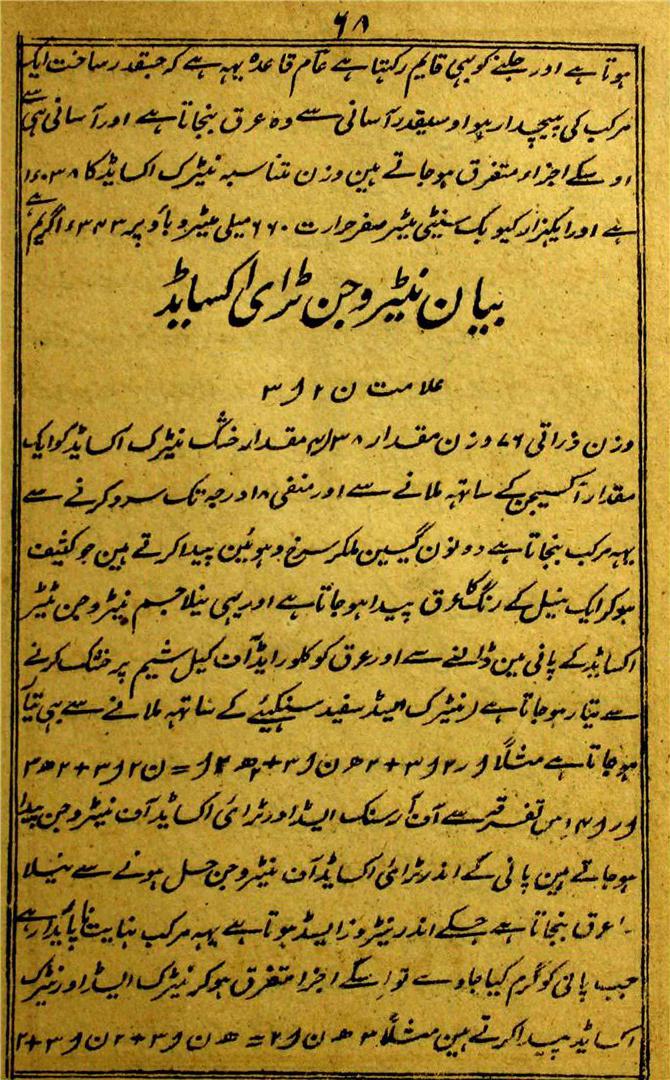 ۶۸
ہوتا ہے اور جلنے کو بہی قایم رکہتا ہے عام قاعدہ یہہ ہے کہ جسقدر ساخت ایک
مرکب کی پیچدار ہو اوسیقدر آسانی سے وہ عرق بنجاتا ہے اور آسانی ہی سے
اوسکے اجزاء متفرق ہوجاتے ہین وزن متناسبہ نیٹرک اکسایڈ کا
ہے اور ایکہزار کیوبک سنیٹی میٹر صفر حرارت ۷۶۰ میلی میٹر دباؤ پر ۱۶۳۴۳ گریم ہے
بیان نیٹروجن ٹرای اکسایڈ
علامت ن ۲ و ۳
وزن ذراتی ۷۶ وزن مقدار ۳۸ و ۴ مقدار خشک نیٹرک اکسایڈ کو ایک
مقدار آکسیجن کے ساتہہ ملانے سے اور منفی ۱۸ درجہ تک سرد کرنے سے
یہہ مرکب بنجاتا ہے دونون گیسین ملکر سرخ دہوئین پیدا کرتے ہین جو کثیف
ہوکر ایک نیل کے رنگ کا عرق پیدا ہوجاتا ہے اور یہی نیلا جسم نیٹروجن ٹیٹر
اکسایڈ کے پانی مین ڈالنے سے اور عرق کو کلورایڈ آف کیل شیم پر خشک کرنے
سے تیار ہوجاتا ہے (نیٹرک ایسڈ سفید سنکہیئے کے ساتہہ ملانے سے بہی تیار
ہوجاتا ہے مثلاً ار ۲ و ۳ + ۲ ھ ن و ۳ + ۲ ھ ۲ و = ن ۲ و ۳ + ۲ ھ ۳
ار و ۴ اس تفرقہ سے آرسنک ایسڈ اور ٹرائی اکسایڈ آف نیٹروجن پیدا
ہوجاتے ہین پانی کے اندر ٹرائی اکسایڈ آف نیٹروجن حل ہونے سے نیلا
عرق بنجاتا ہے جسکے اندر نیٹروز ایسڈ ہوتا ہے یہہ مرکب نہایت ناپائدار ہے
جب پانی کو گرم کیا جاوے تو اسکے اجزا متفرق ہوکر نیٹرک ایسڈ اور نیٹرک
اکسایڈ پیدا کرتے ہین مثلاً ۳ ھ ن و ۲ = ھ ن و ۳ + ۲ ن و + ھ ۲